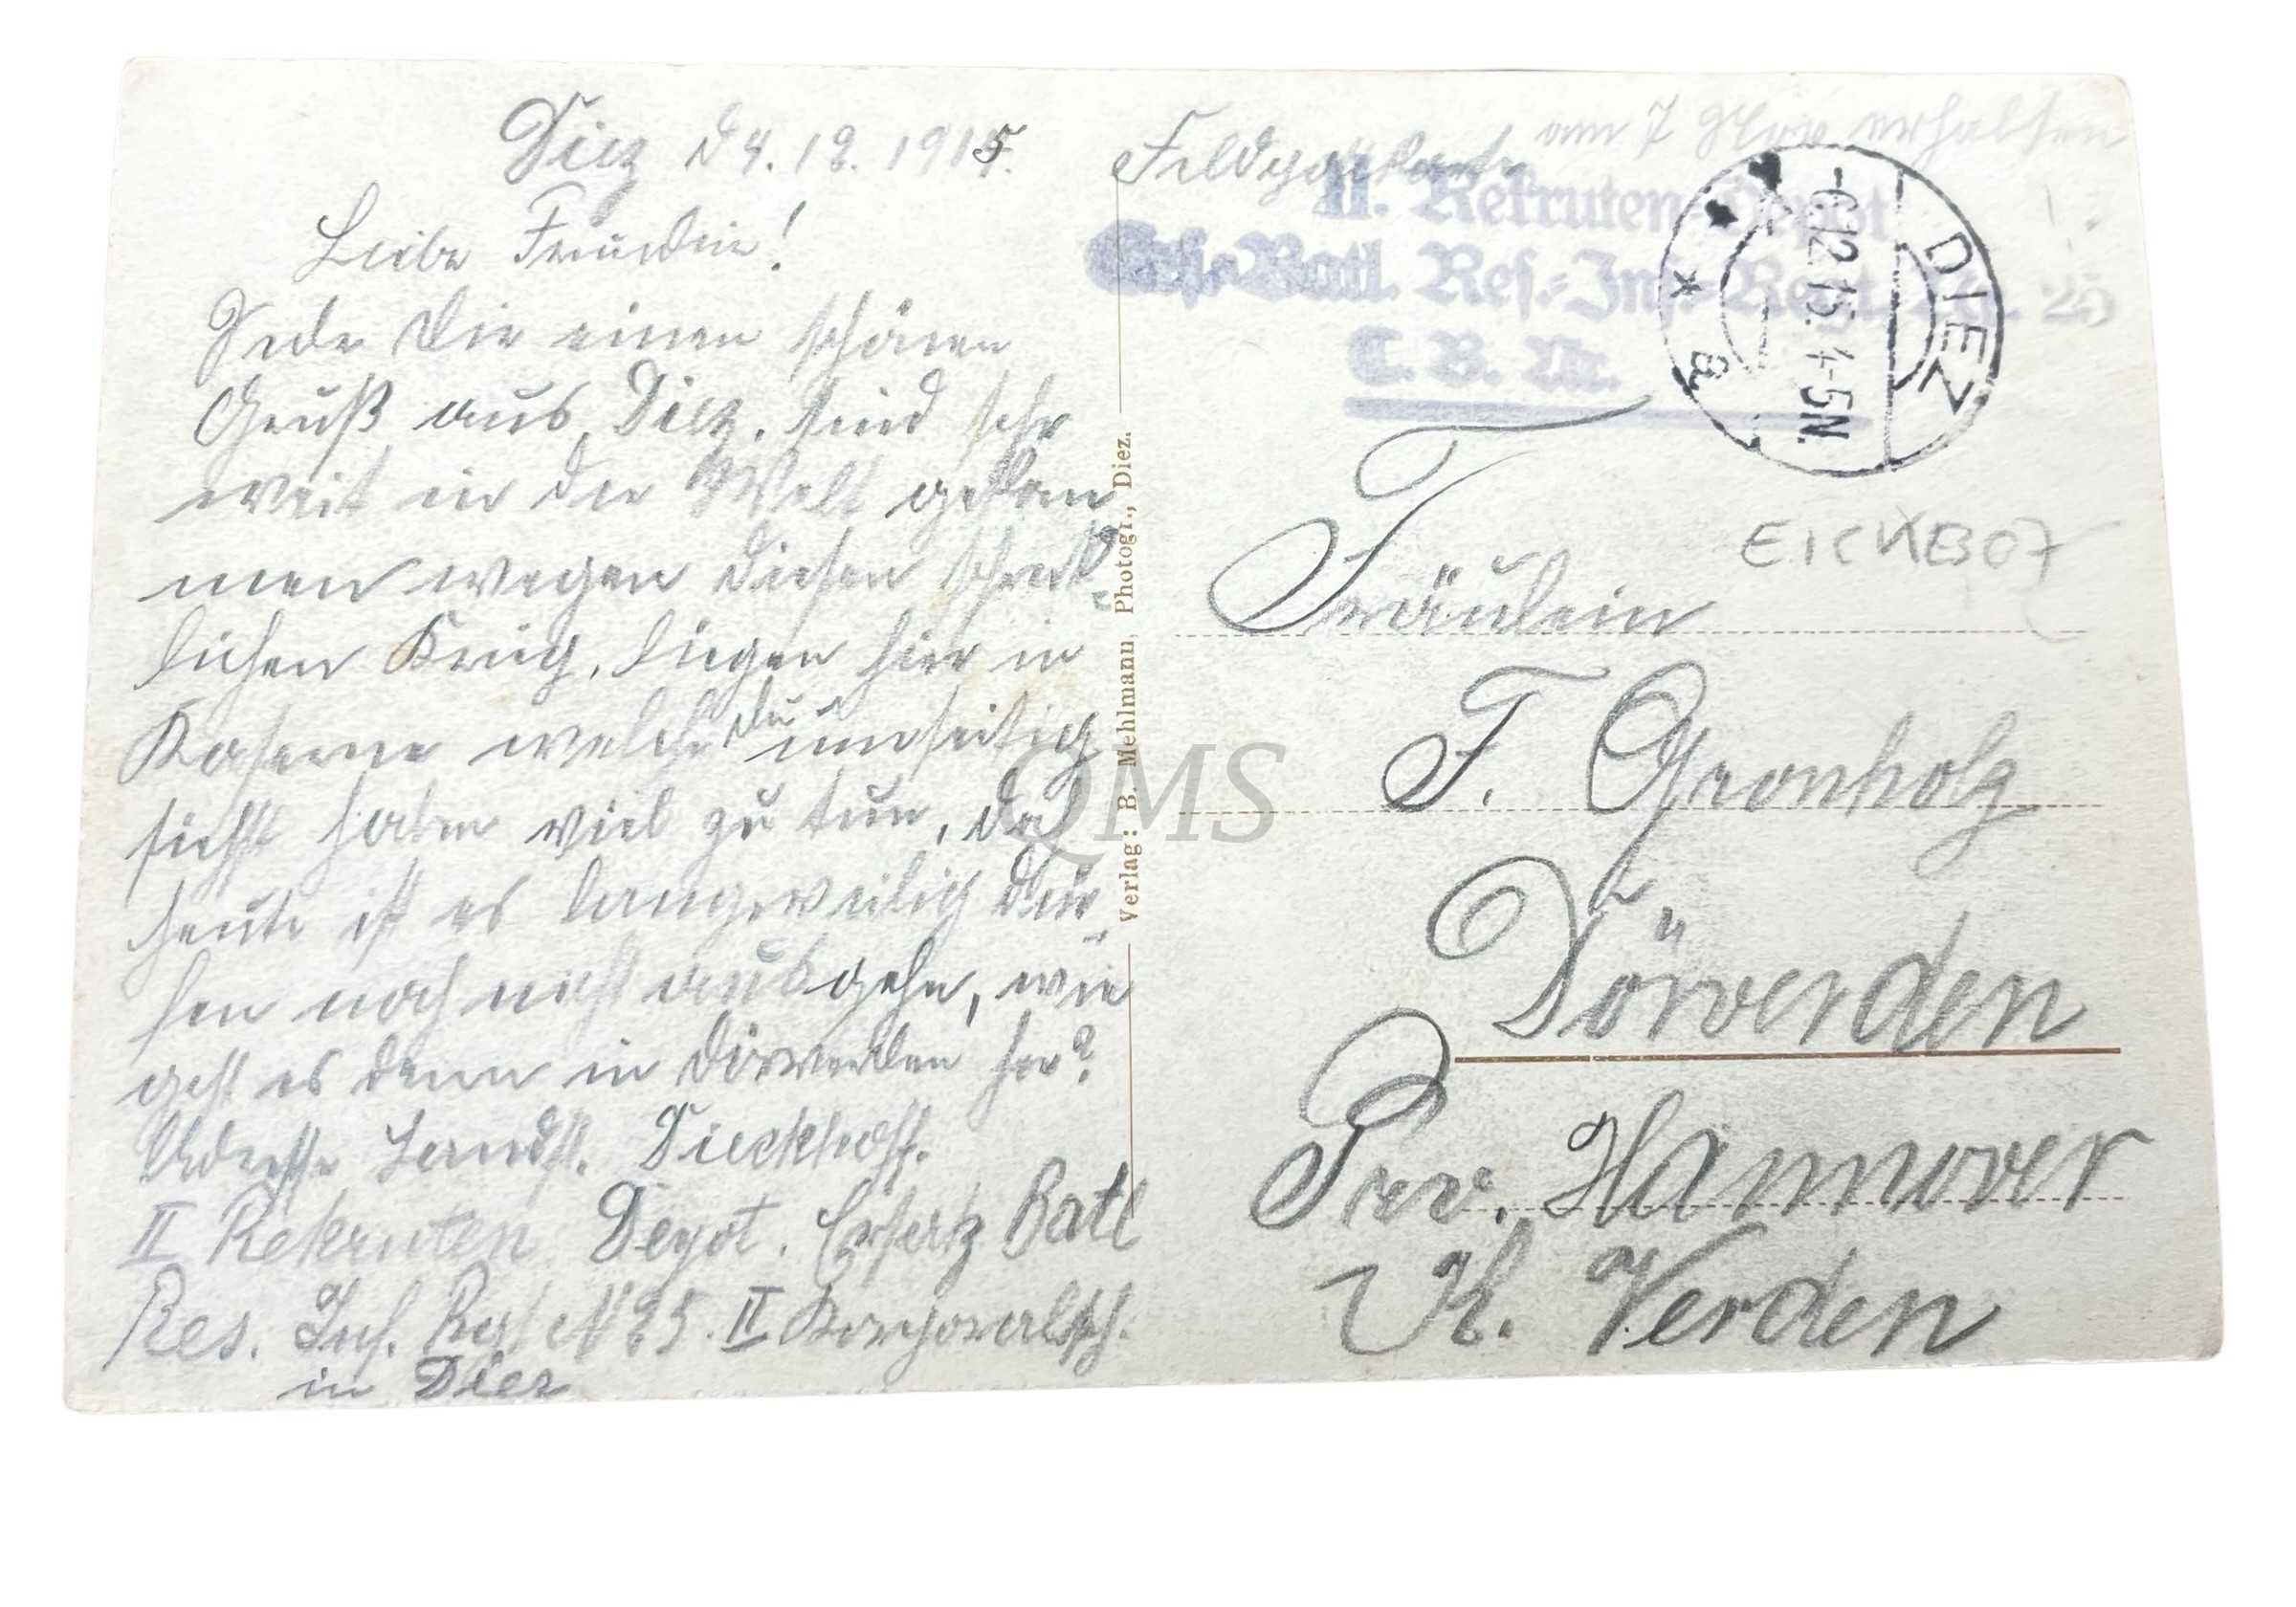 Diez d 4. 12. 1915.
Liebe Freundin!
Sede Dir einen schönen
Gruß aus Diez. sind sehr
weit in der Welt gekom
men wegen diesen schreck-
lichen Krieg. liegen hier in
Kaserne welche du umseitig
siehst haben viel zu tun, doch
heute ist es langweilig dür-
fen noch nicht ausgehn, wie
geht es denn in Dörverden her?
Adresse Landst. Dieckhoff.
II Rekruten Depot. Ersatz Batl
Res. Inf. Regt No 25. II Korporalsch.
in Diez
Verlag: B. Mehlmann Photogr., Diez.
Feldpostkarte
am 7 erhalten
II. Rekruten Depot
Ers. Batl. Res.-Inf.-Regt. Nr. 25
C. B. Nr.
DIEZ
-6.12.15. 4-5N.
* a
EICKB07
Fräulein
F. Gronholz
Dörverden
Prv. Hannover
K. Verden
QMS